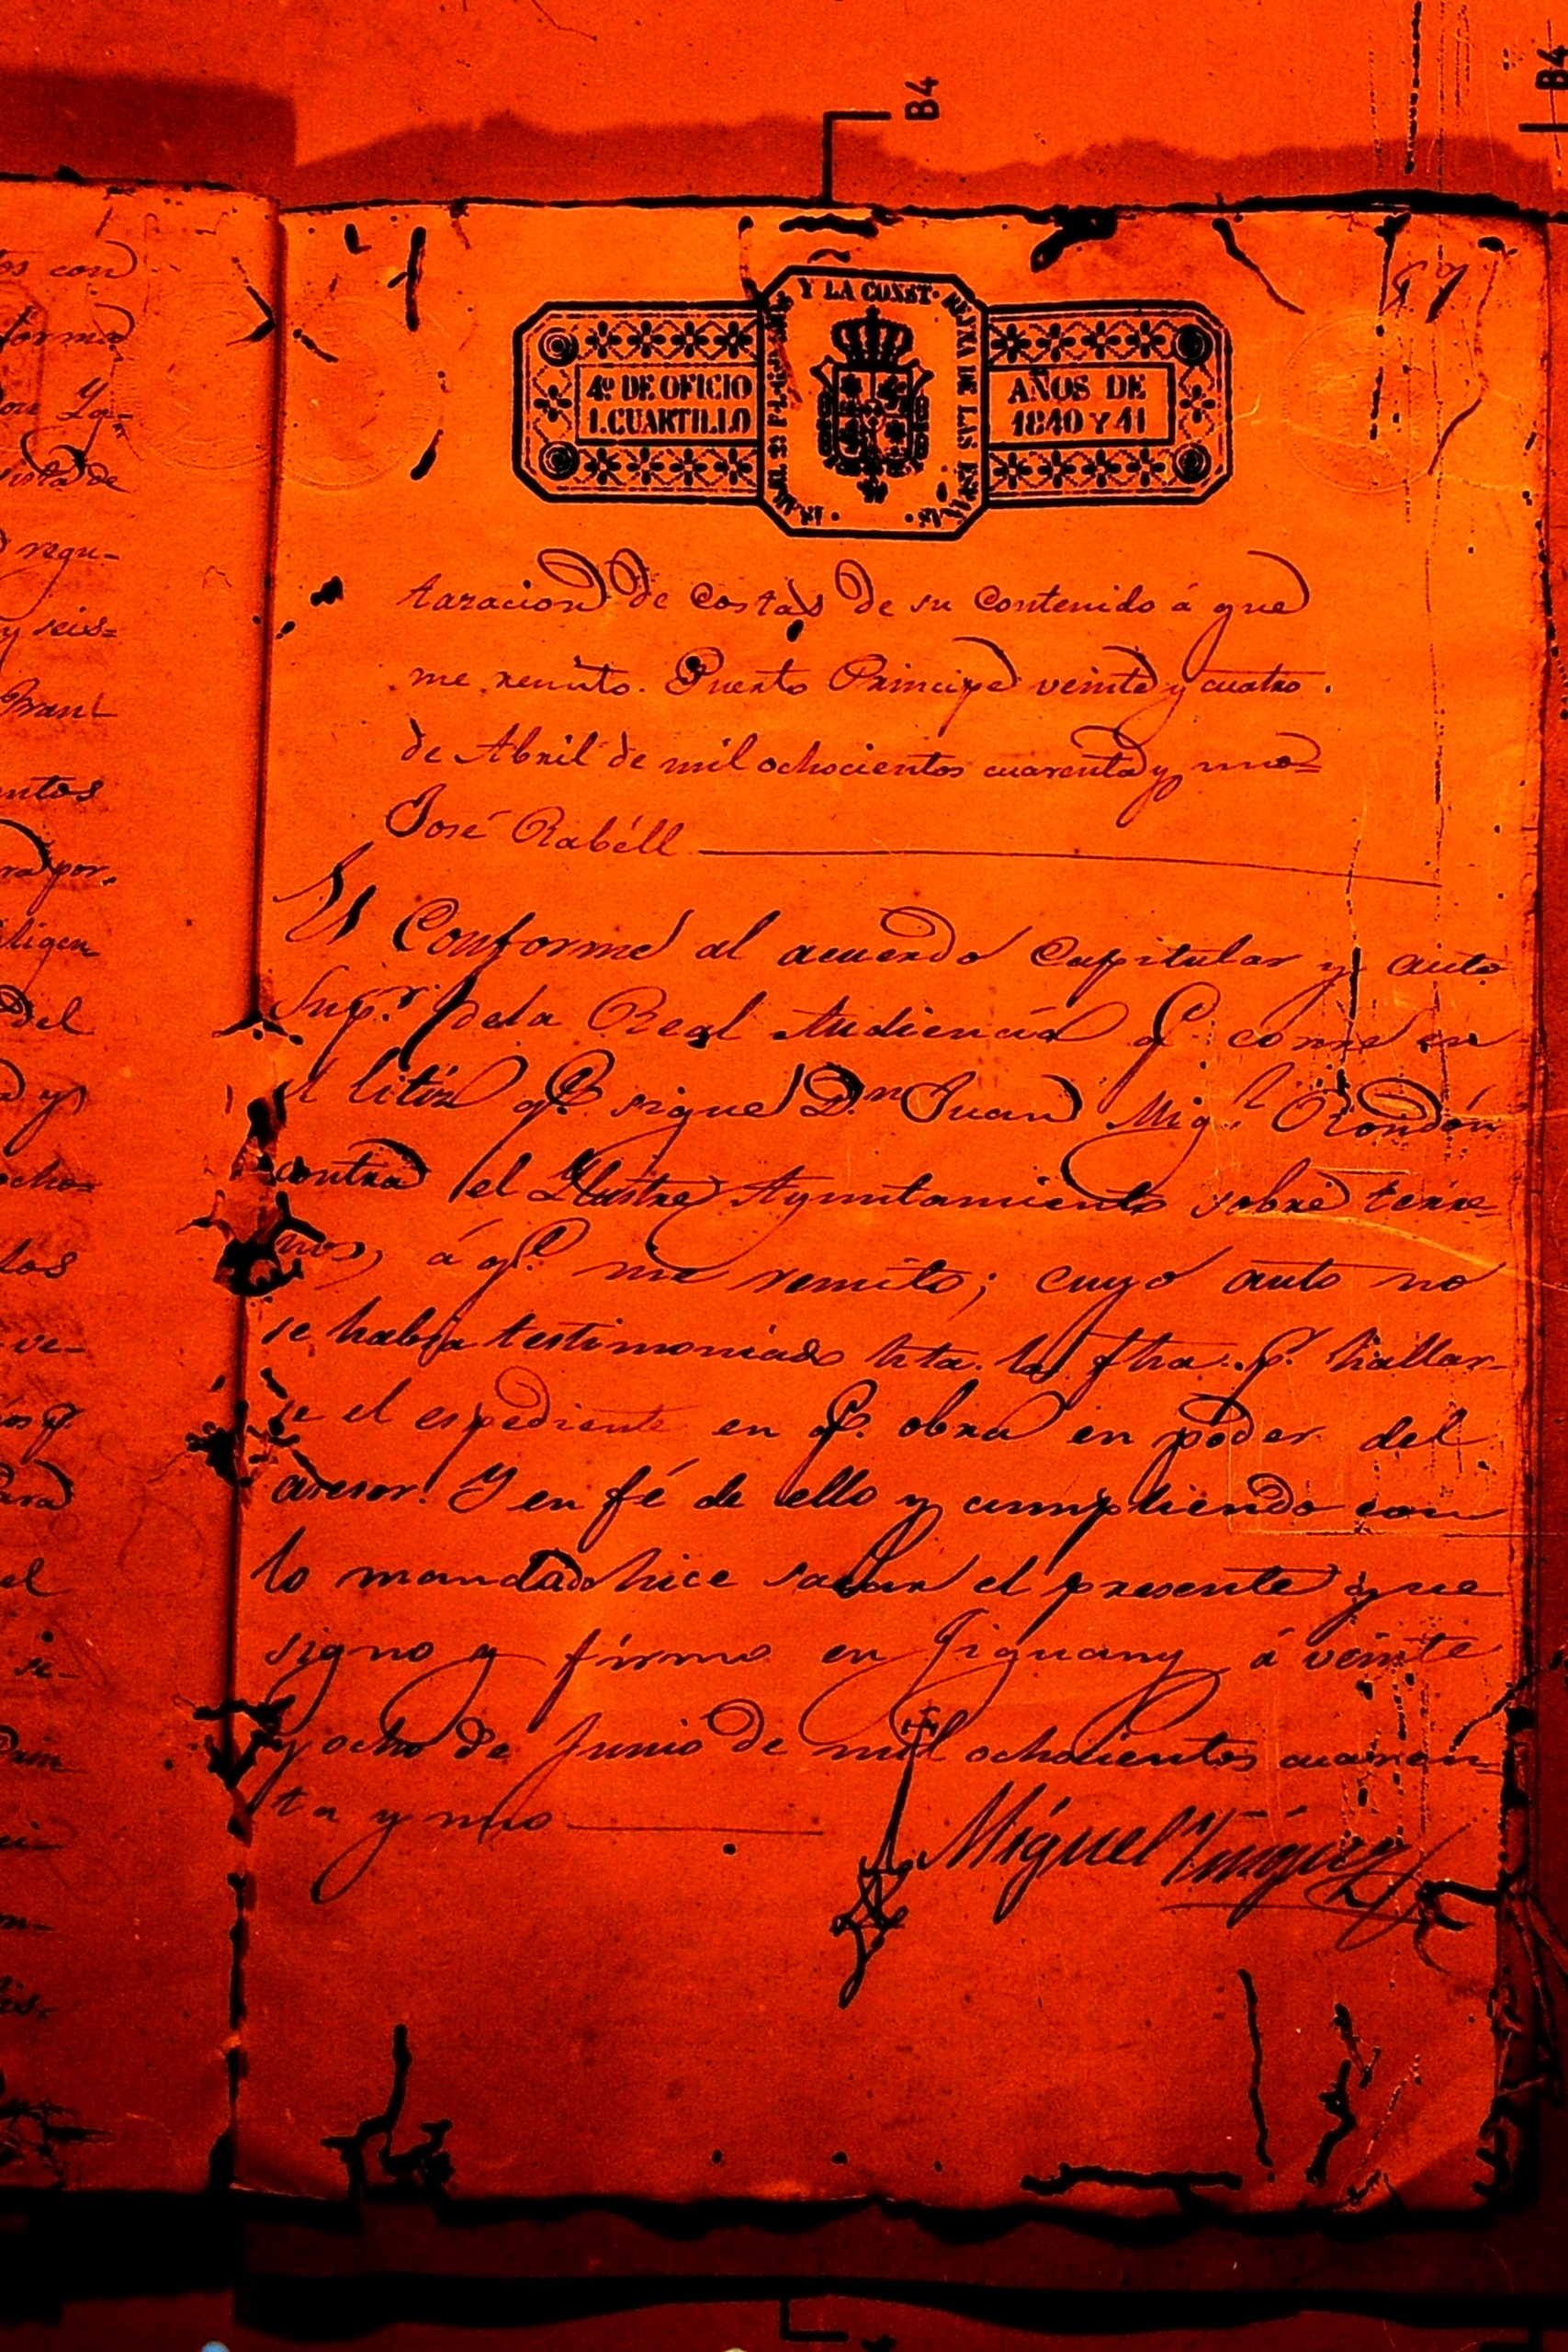 B4
B4
67
ISABEL 2ª P. LA G. DE DIOS Y LA CONST. REYNA DE LAS ESPAÑAS
4º DE OFICIO
1.CUARTILLO
AÑOS DE
1840 Y 41
tazacion de costas de su contenido á que
me remito. Puerto Principe veinte y cuatro
de Abril de mil ochocientos cuarenta y uno=
José Rabéll
Es Conforme al acuerdo Capitular y auto
Supr. dela Real Audiencia q.e corre en
el litis q.e sigue D.n Juan Mig.l Rondón
contra el Ilustre Ayuntamiento sobre terre-
nos, á q.e me remito; cuyo auto no
se habia testimoniado hta. la fha. p.r hallar-
se el espediente en q.e obra en poder del
asesor. Y en fé de ello y cumpliendo con
lo mandado hice sacar el presente que
signo y firmo en Jiguany á veinte
y ocho de Junio de mil ochocientos cuaren-
ta y uno
Miguel
os con
forma
vista de
regu-
y seis=
entos
por.
del
y
ocho=
los
ve-
el
si-